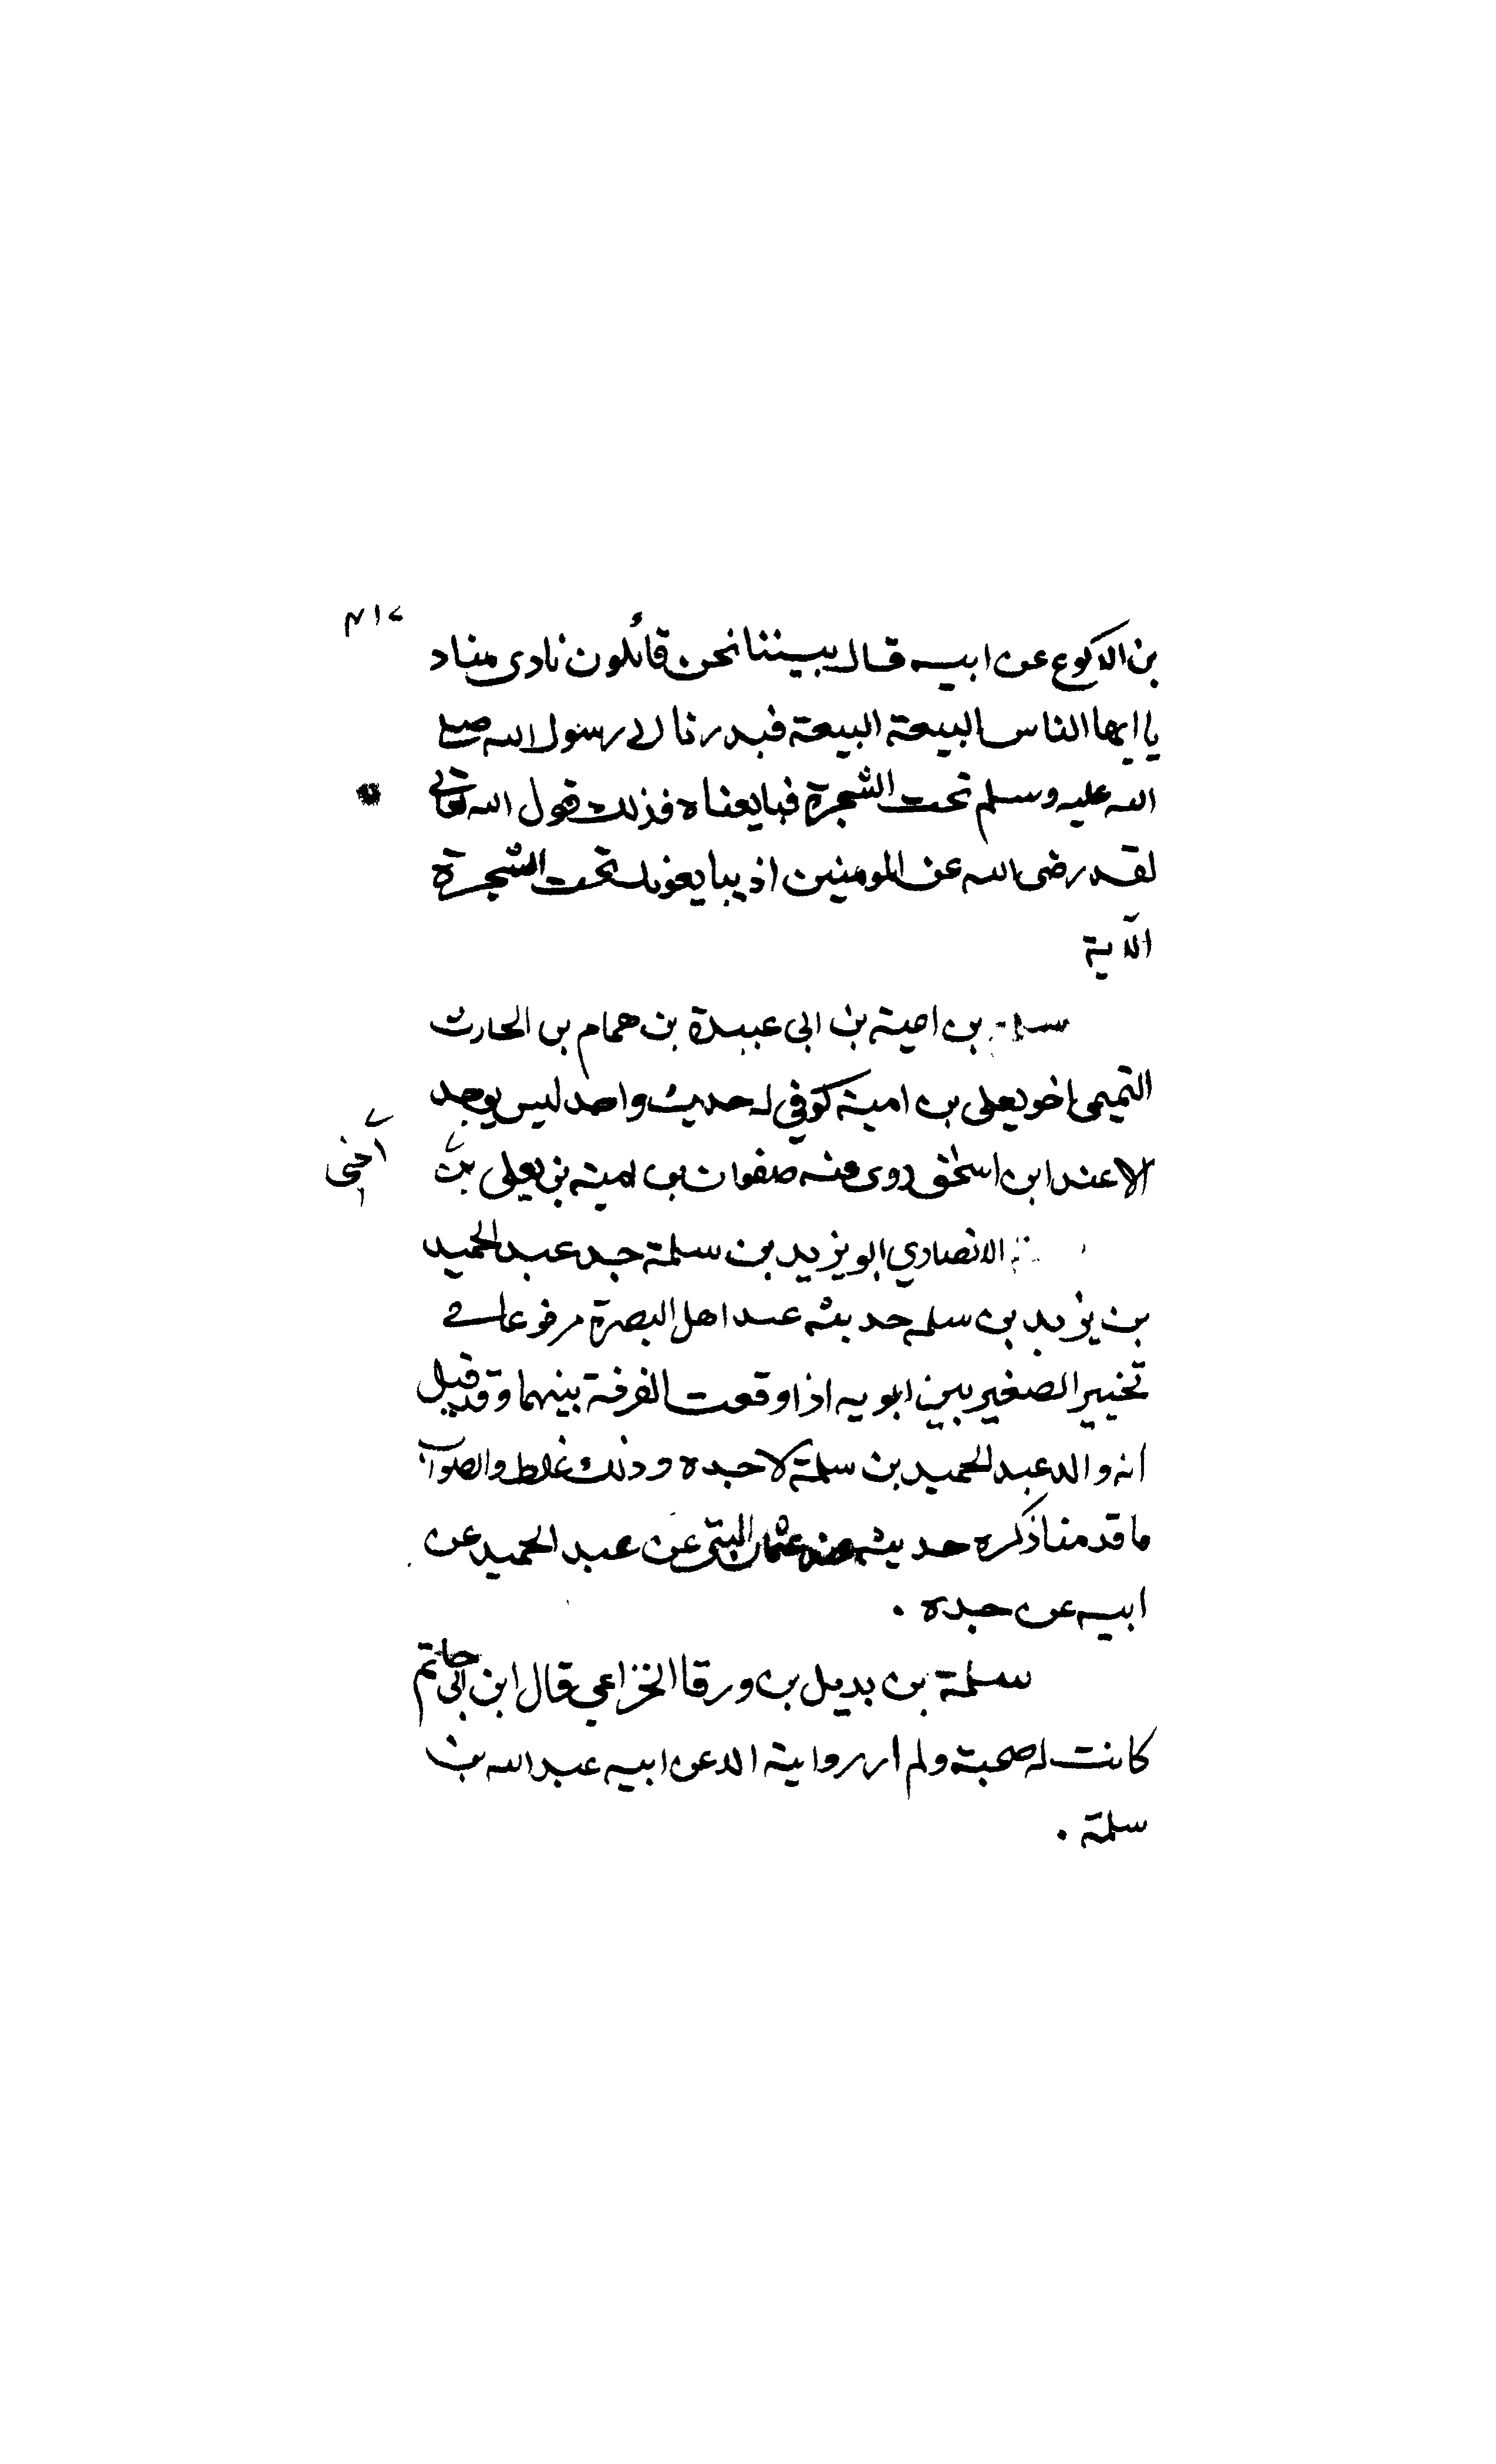 بن الاكوع عن ابيه قال بيننا نحن قائلون نادى مناد
يا ايها الناس البيعة البيعة فبدرنا الى رسول الله صلى
الله عليه وسلم تحت الشجرة فبايعناه فذلك قول الله تعالى
لقد رضى الله عن المومنين اذ يبايعونك تحت الشجرة
الآية
سلمة بن امية بن ابى عبيدة بن همام بن الحارث
التميمى اخو يعلى بن امية كوفي له حديث واحد ليس يوجد
الا عند ابن اسحق روى عنه صفوان بن امية بن يعلى بن
اخى
الانصاري ابو يزيد بن سلمة جد عبد الحميد
بن يزيد بن سلمه حديثه عند اهل البصرة مرفوعا في
تخيير الصغير بين ابويه اذا وقعت الفرقة بينهما وقد قيل
انه والد عبد الحميد بن سلمة لا جده وذلك غلط والصواب
ما قدمنا ذكره حديثه عند عثمان البتى عن عبد الحميد عن
ابيه عن جده .
سلمة بن بديل بن ورقا الخزاعي قال ابن ابى حاتم
كانت له صحبة ولم ار رواية الا عن ابيه عبد الله بن
سلمة .